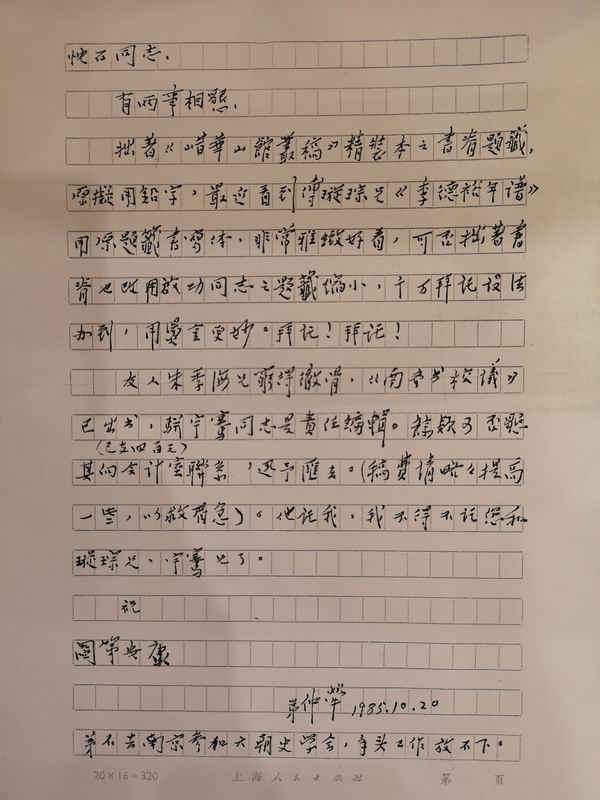 忱石同志：
有两事相恳，
拙著《蜡华山館叢稿》精裝本之書脊題籤，
原擬用鉛字，最近看到傅璇琮兄《李德裕年谱》
用原題籤書寫体，非常雅緻好看，可否拙著書
脊也改用啟功同志之題籤缩小，千万拜託设法
办到，用燙金更妙。拜託！拜託！
友人朱季海兄窮得徹骨，《南齐书校議》
已出书，骈宇騫同志是责任编輯。稿费可否恳
(已在四百元)
其向会计室聯系，迅予匯去。(稿费請略々提高
一些，以救君急)。他託我，我不得不託您和
璇琮兄、宇騫兄了。
祝
閤第安康
弟仲犖 1985.10.20
弟不去南京參加六朝史学会，手头工作放不下。
20×16=320 上海人民出版社 第 页